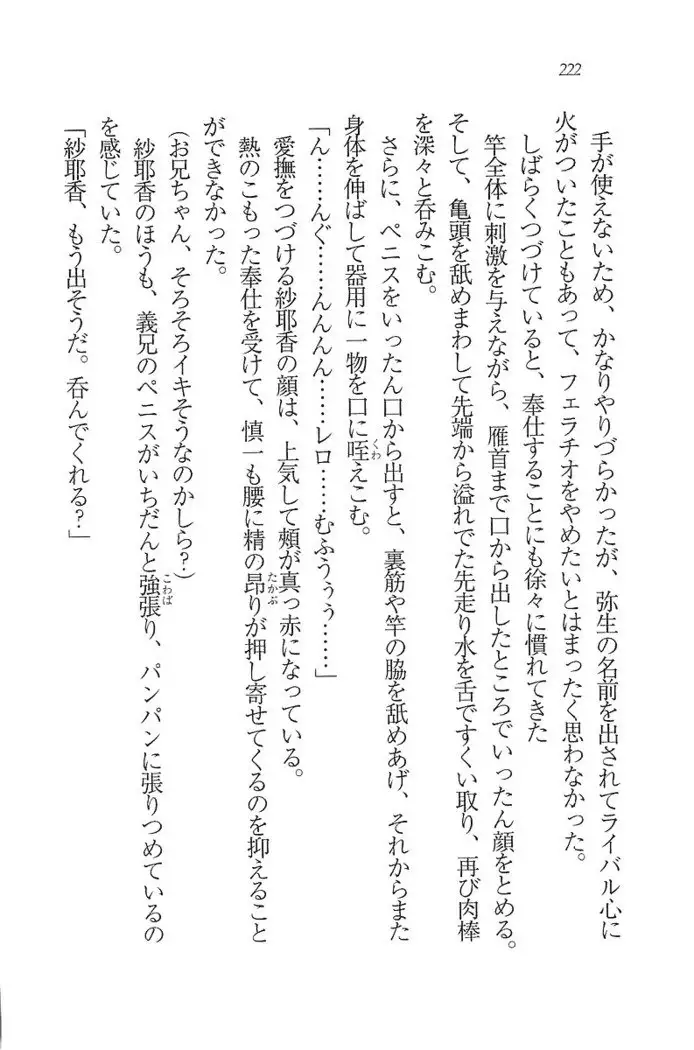 222
手が使えないため、かなりやりづらかったが、弥生の名前を出されてライバル心に
火がついたこともあって、フェラチオをやめたいとはまったく思わなかった。
しばらくつづけていると、奉仕することにも徐々に慣れてきた
竿全体に刺激を与えながら、雁首まで口から出したところでいったん顔をとめる。
そして、亀頭を舐めまわして先端から溢れでた先走り水を舌ですくい取り、再び肉棒
を深々と呑みこむ。
さらに、ペニスをいったん口から出すと、裏筋や竿の脇を舐めあげ、それからまた
身体を伸ばして器用に一物を口に咥えこむ。
「ん……んぐ……んんんん……レロ……むふうぅぅ……」
愛撫をつづける紗耶香の顔は、上気して頬が真っ赤になっている。
熱のこもった奉仕を受けて、慎一も腰に精の昂りが押し寄せてくるのを抑えること
ができなかった。
(お兄ちゃん、そろそろイキそうなのかしら?)
紗耶香のほうも、義兄のペニスがいちだんと強張り、パンパンに張りつめているの
を感じていた。
「紗耶香、もう出そうだ。呑んでくれる?」